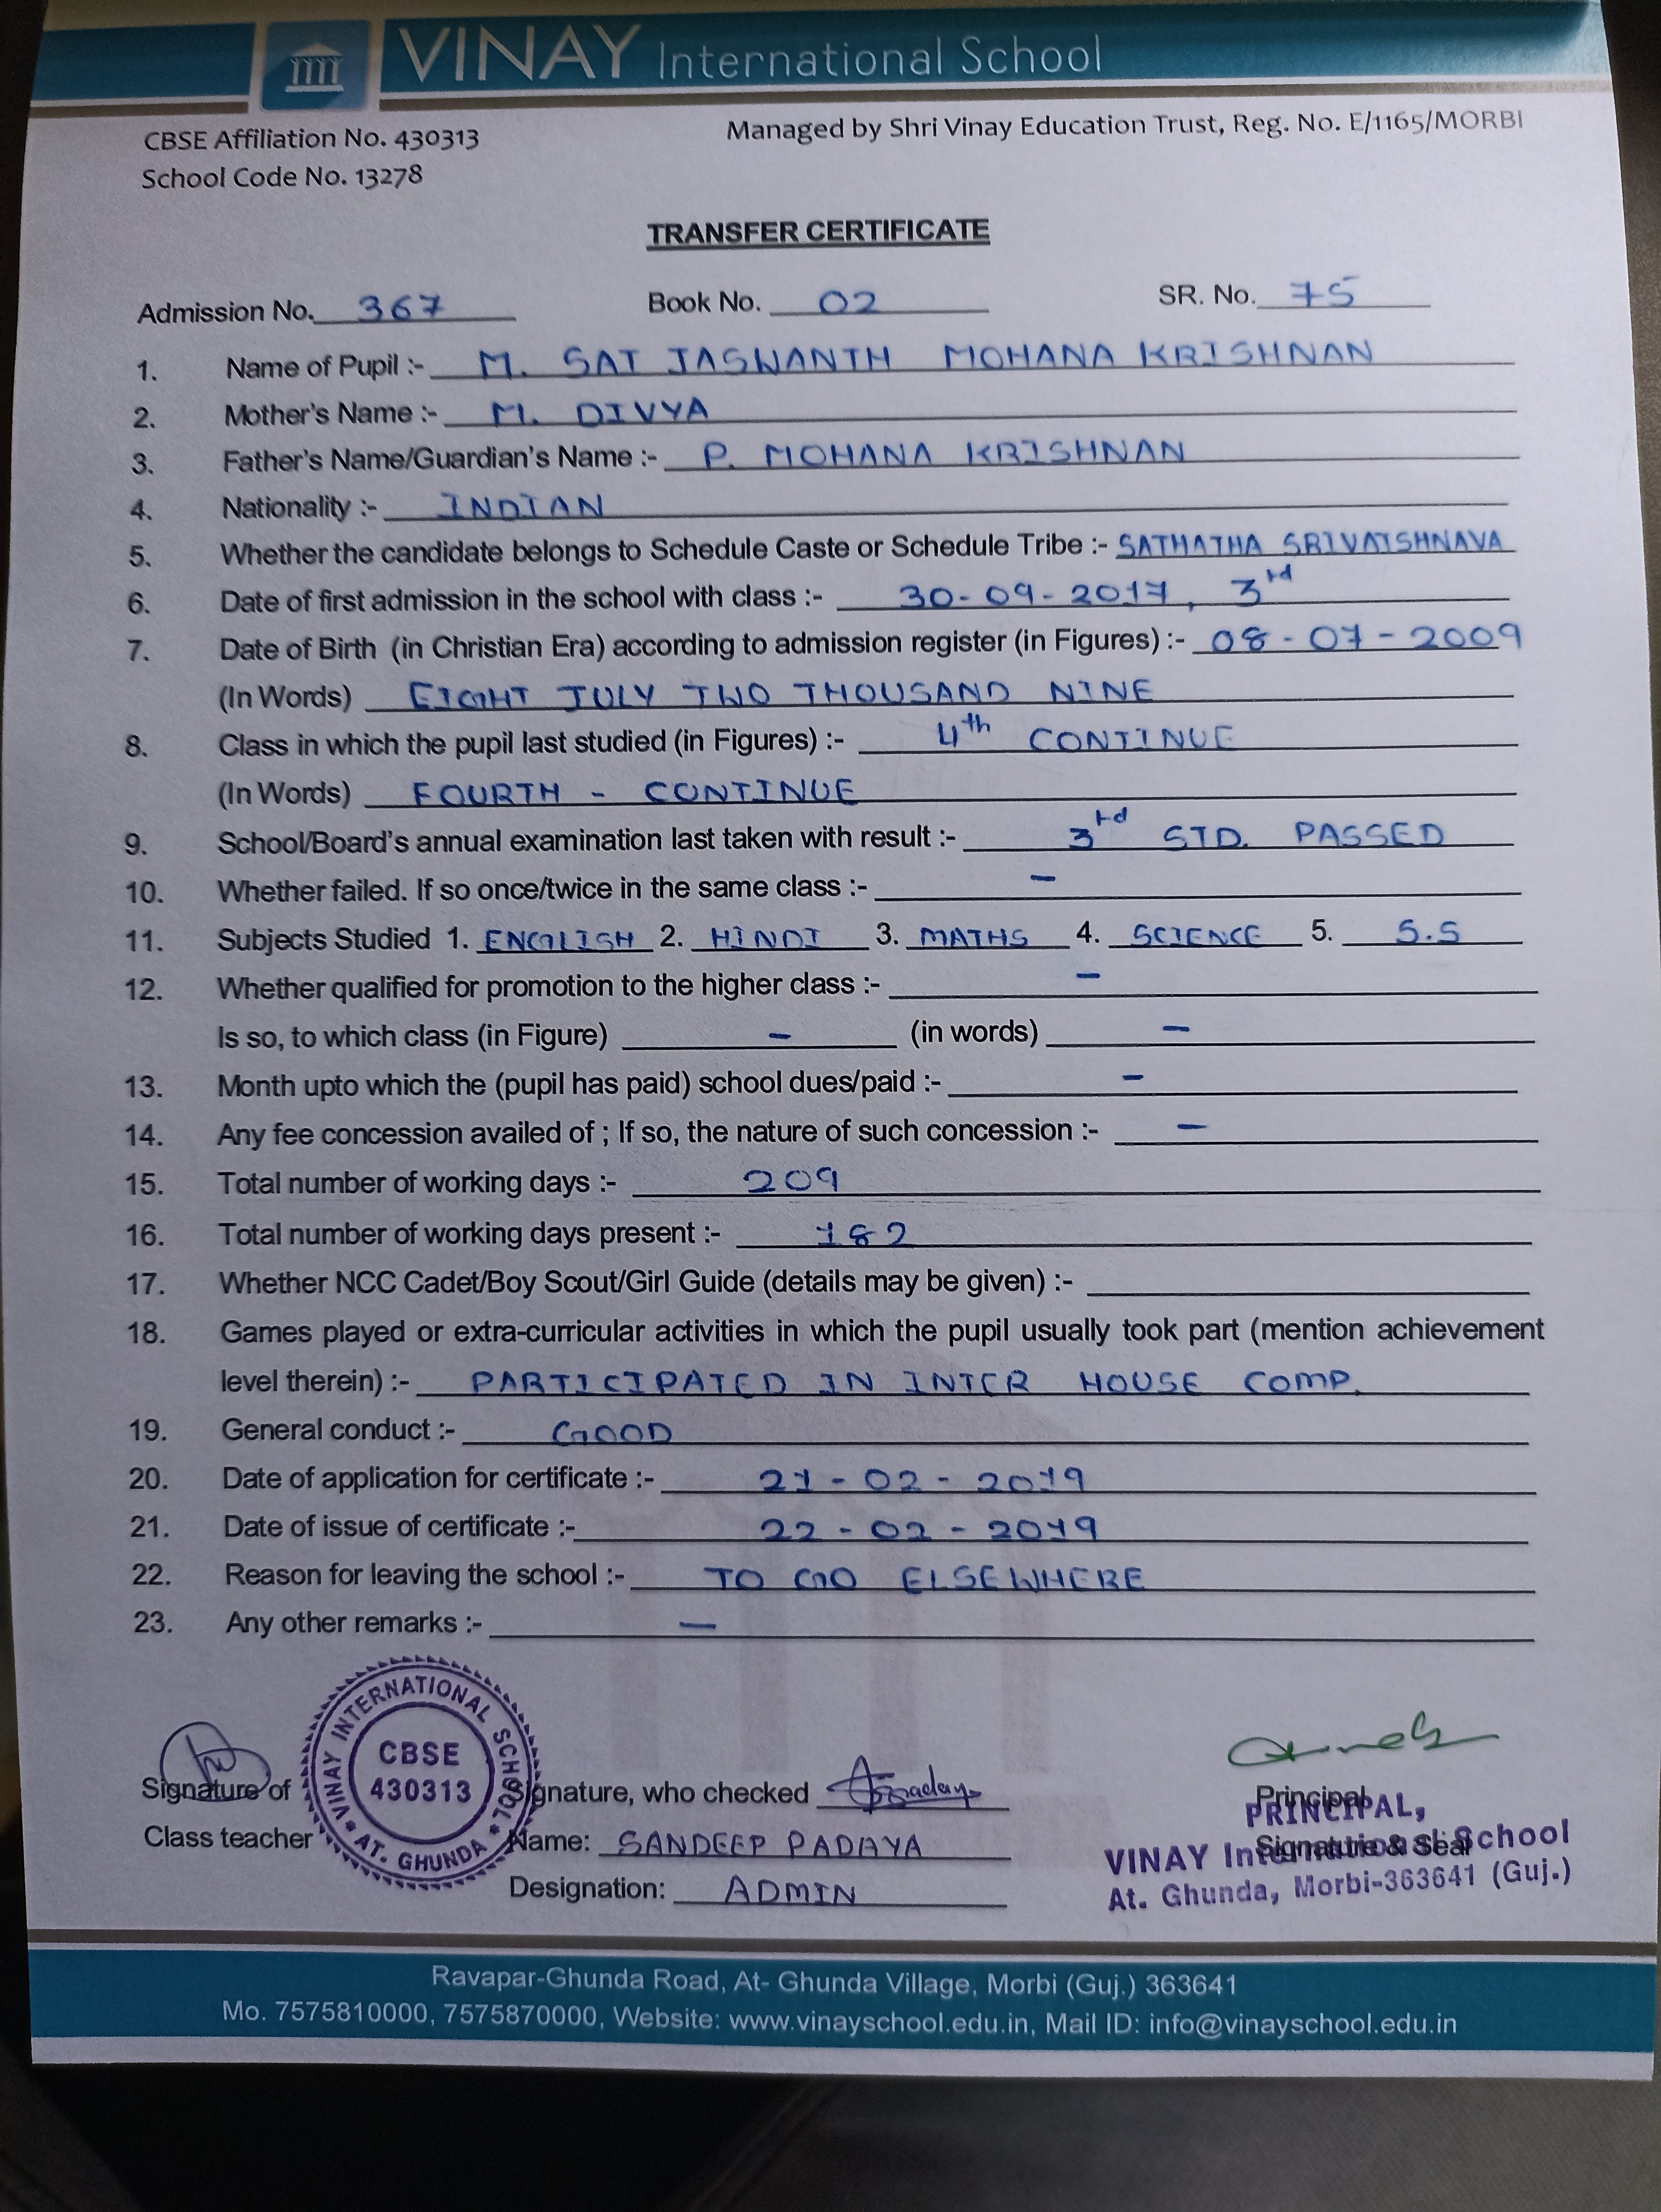 VINAY International School
CBSE Affiliation No. 430313
Managed by Shri Vinay Education Trust, Reg. No. E/1165/MORBI
School Code No. 13278
TRANSFER CERTIFICATE
Admission No. 367 Book No. 02 SR. No. 75
1. Name of Pupil :- M. SAI JASWANTH MOHANA KRISHNAN
2. Mother's Name :- M. DIVYA
3. Father's Name/Guardian's Name :- P. MOHANA KRISHNAN
4. Nationality :- INDIAN
5. Whether the candidate belongs to Schedule Caste or Schedule Tribe :- SATHATHA SRIVAISHNAVA
6. Date of first admission in the school with class :- 30-09-2017, 3rd
7. Date of Birth (in Christian Era) according to admission register (in Figures) :- 08-07-2009
(In Words) EIGHT JULY TWO THOUSAND NINE
8. Class in which the pupil last studied (in Figures) :- 4th CONTINUE
(In Words) FOURTH - CONTINUE
9. School/Board's annual examination last taken with result :- 3rd STD. PASSED
10. Whether failed. If so once/twice in the same class :- -
11. Subjects Studied 1. ENGLISH 2. HINDI 3. MATHS 4. SCIENCE 5. S.S
12. Whether qualified for promotion to the higher class :- -
Is so, to which class (in Figure) - (in words) -
13. Month upto which the (pupil has paid) school dues/paid :- -
14. Any fee concession availed of ; If so, the nature of such concession :- -
15. Total number of working days :- 209
16. Total number of working days present :- 182
17. Whether NCC Cadet/Boy Scout/Girl Guide (details may be given) :-
18. Games played or extra-curricular activities in which the pupil usually took part (mention achievement
level therein) :- PARTICIPATED IN INTER HOUSE COMP.
19. General conduct :- GOOD
20. Date of application for certificate :- 21-02-2019
21. Date of issue of certificate :- 22-02-2019
22. Reason for leaving the school :- TO GO ELSEWHERE
23. Any other remarks :- -
VINAY INTERNATIONAL SCHOOL * AT. GHUNDA *
CBSE
430313
Signature of
Class teacher
Signature, who checked
Name: SANDEEP PADAYA
Designation: ADMIN
Principal
Signature & Seal
PRINCIPAL,
VINAY International School
At. Ghunda, Morbi-363641 (Guj.)
Ravapar-Ghunda Road, At- Ghunda Village, Morbi (Guj.) 363641
Mo. 7575810000, 7575870000, Website: www.vinayschool.edu.in, Mail ID: info@vinayschool.edu.in